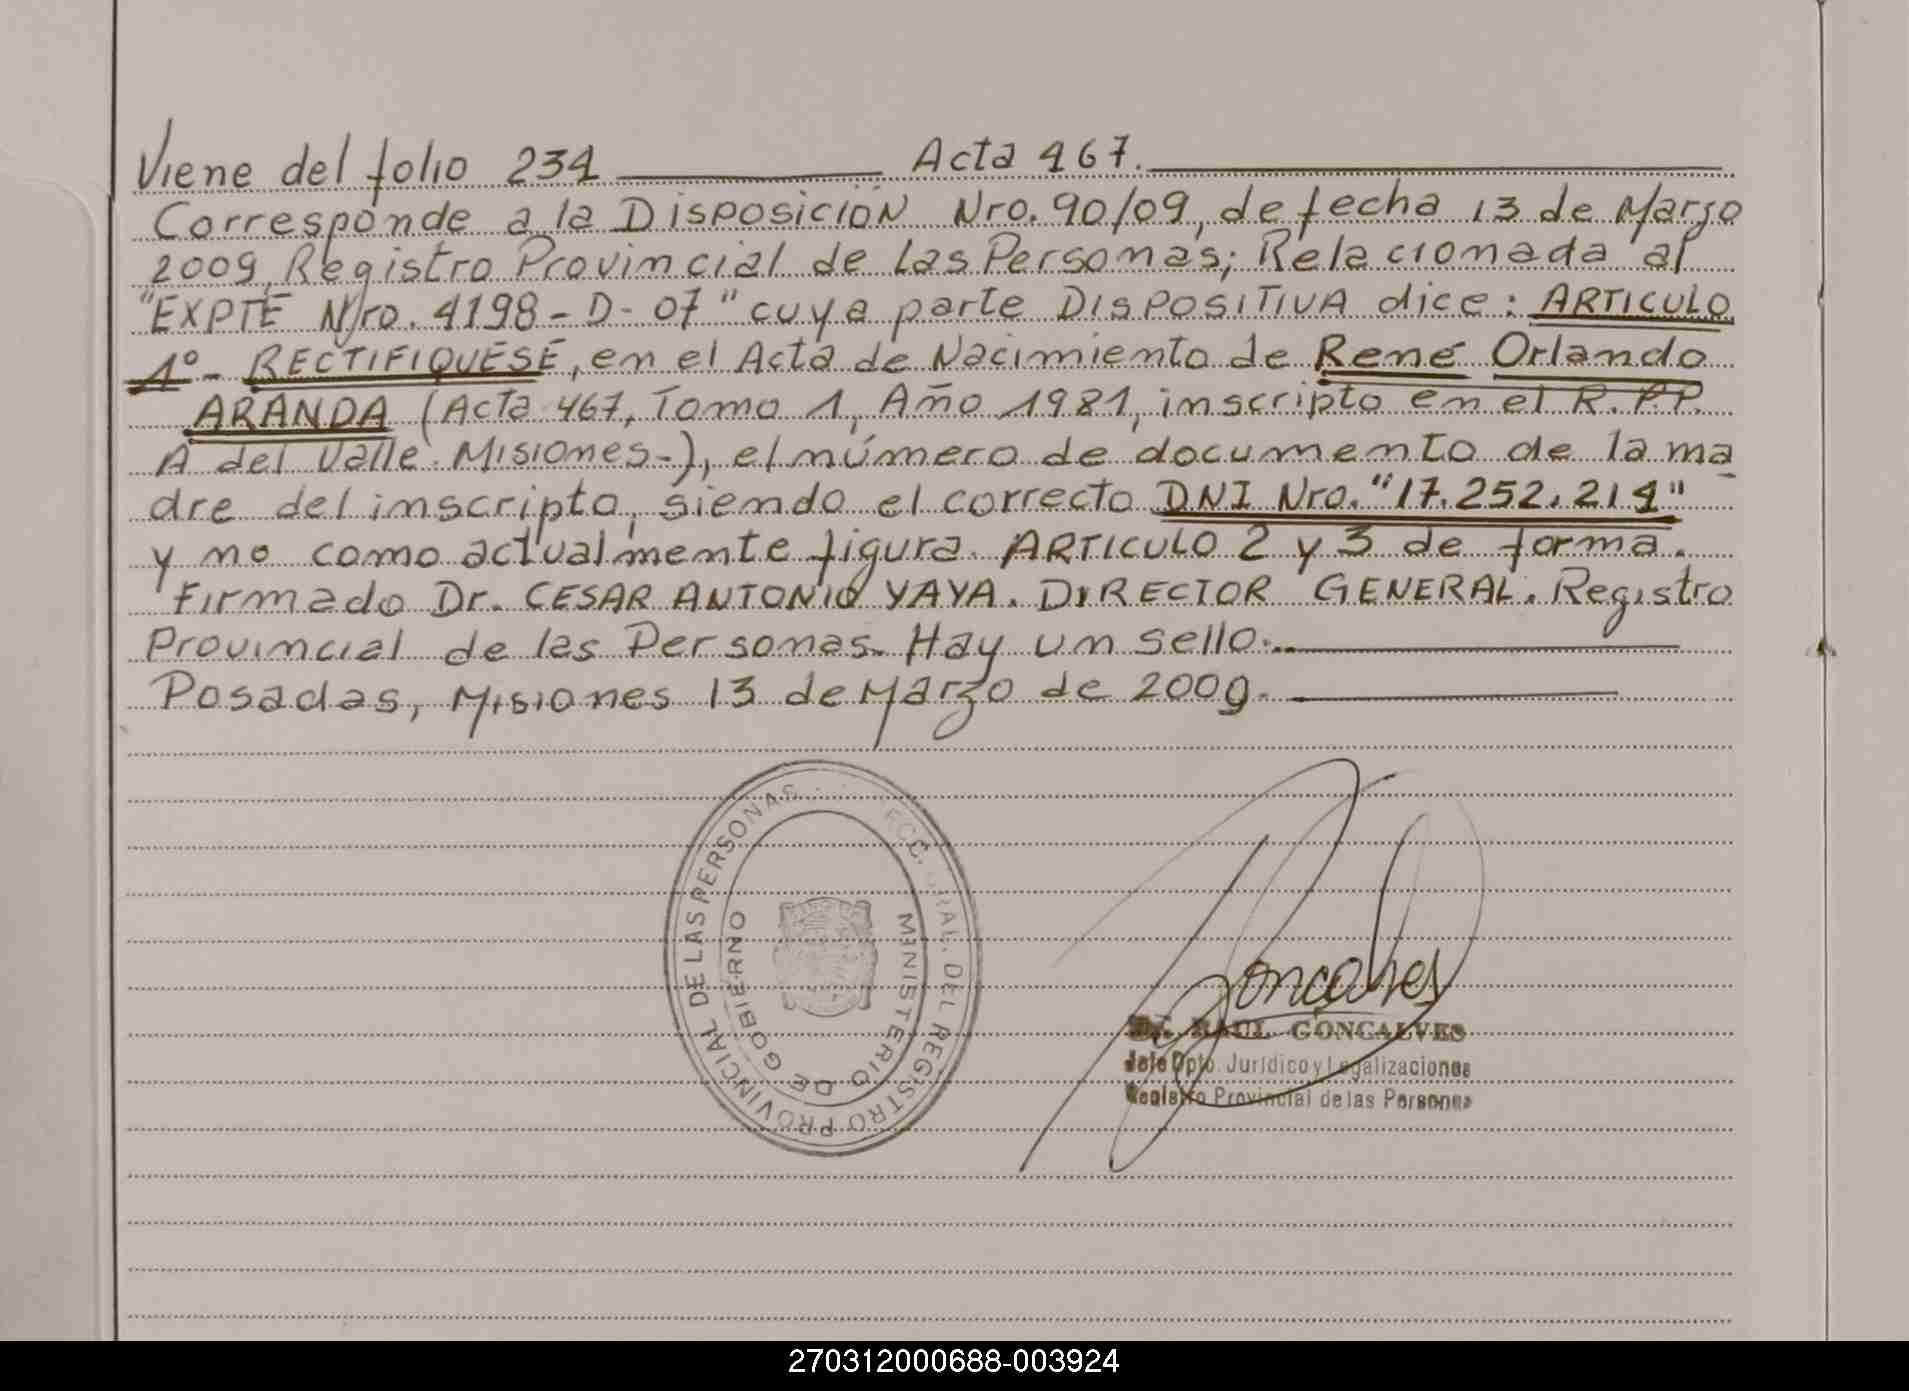 Viene del folio 234 Acta 467.
Corresponde a la DISPOSICIÓN Nro. 90/09, de fecha 13 de Marzo
2009, Registro Provincial de Las Personas; Relacionada al
"EXPTE Nro. 4198-D-07" cuya parte DISPOSITIVA dice: ARTICULO
1º- RECTIFIQUESE, en el Acta de Nacimiento de René Orlando
ARANDA (Acta 467, Tomo 1, Año 1981, inscripto en el R.P.P.
A del Valle. Misiones-), el número de documento de la ma
dre del inscripto, siendo el correcto DNI Nro. "17.252.214"
y no como actualmente figura. ARTICULO 2 y 3 de forma.
Firmado Dr. CESAR ANTONIO YAYA. DIRECTOR GENERAL. Registro
Provincial de las Personas. Hay un sello.
Posadas, Misiones 13 de Marzo de 2009.
GRAL. DEL REGISTRO PROVINCIAL DE LAS PERSONAS
MINISTERIO DE GOBIERNO
Goncalves
Dr. RAUL GONCALVES
Jefe Dpto. Jurídico y Legalizaciones
Registro Provincial de las Personas
270312000688-003924